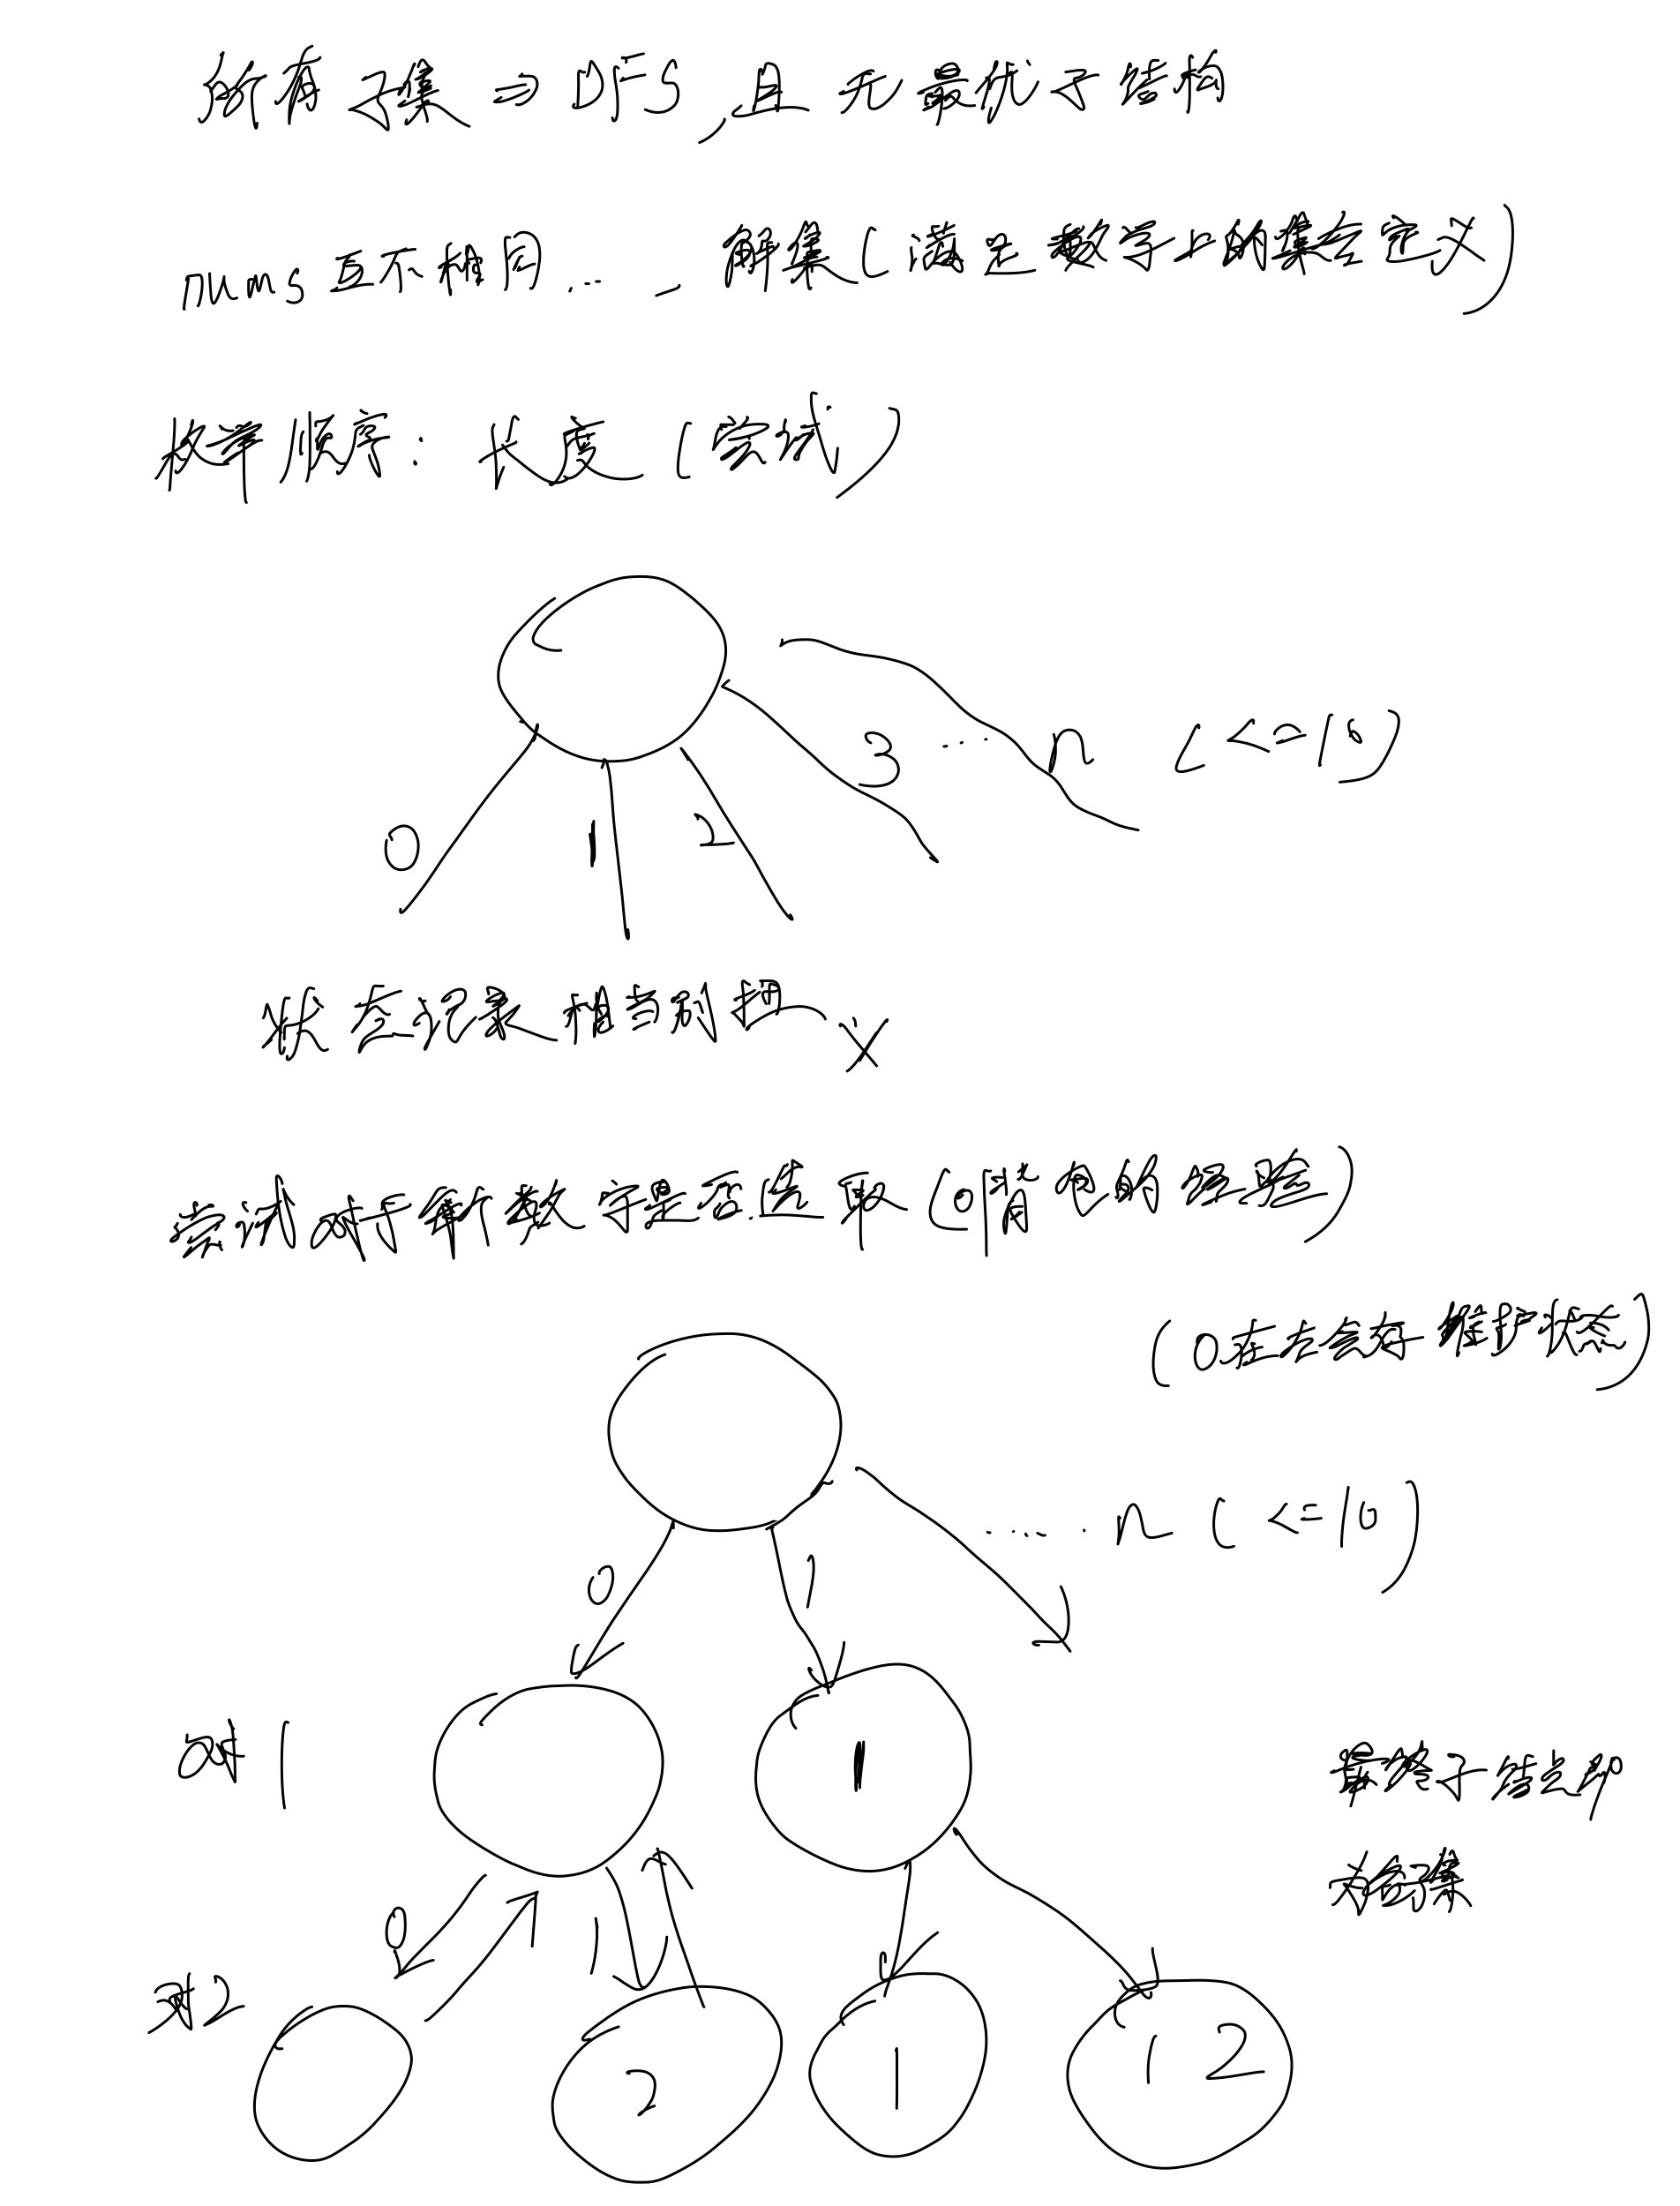 所有子集 => DFS,且无最优子结构
nums互不相同... 解集(满足数学上的集合定义)
枚举顺序:长度(尝试)
0 1 2 3 ... n (<=10)
状态记录相当别扭 ×
尝试对于单个数字是否选取(01背包的经验)
(0左右会好维护状态)
0 1 ...... n (<=10)
对1 1
最终子结点即
为答案
0 1 0
对2 2 1 1 2